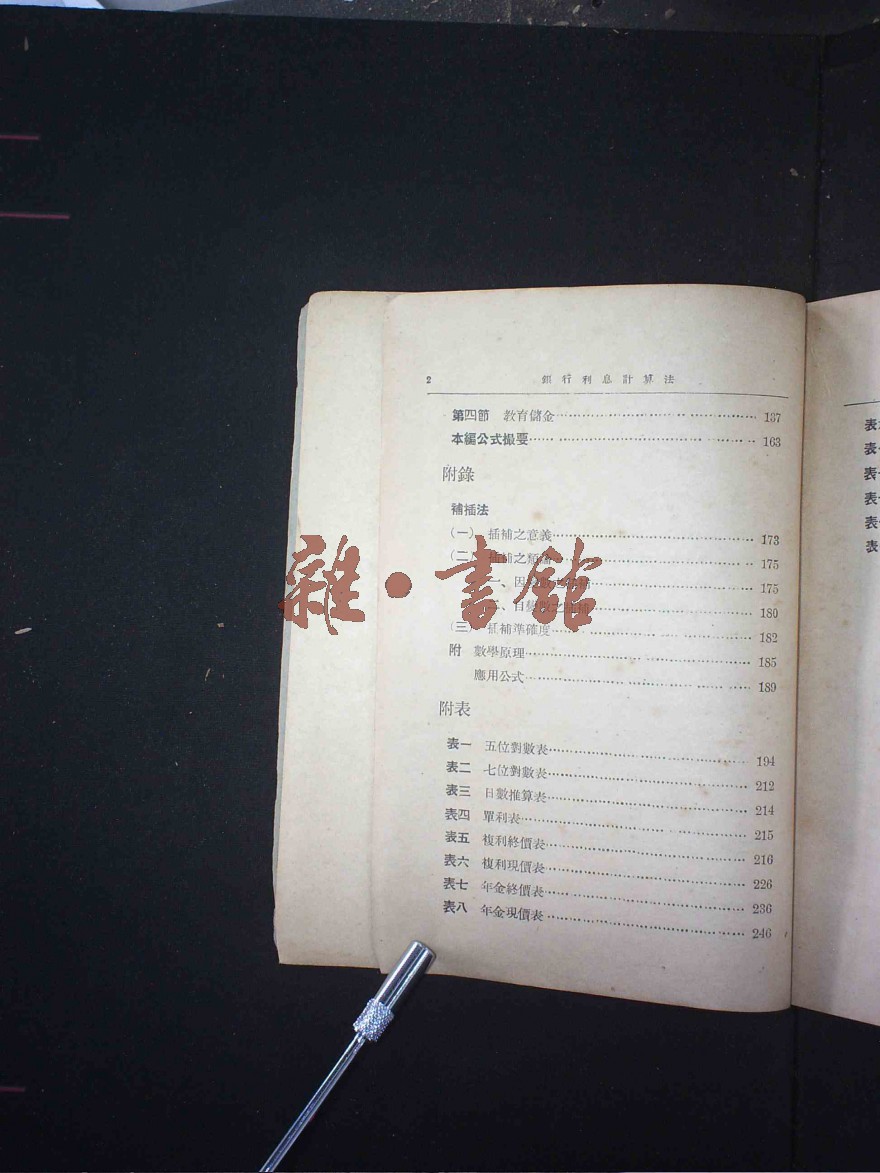 2 銀行利息計算法
第四節 教育儲金 137
本編公式撮要 163
附錄
補插法
(一) 插補之意義 173
(二) 插補之 175
一、因 175
二、自變數之 180
(三) 插補準確度 182
附 數學原理 185
應用公式 189
附表
表一 五位對數表 194
表二 七位對數表 212
表三 日數推算表 214
表四 單利表 215
表五 複利終價表 216
表六 複利現價表 226
表七 年金終價表 236
表八 年金現價表 246
雜·書館
表
表
表
表
表
表